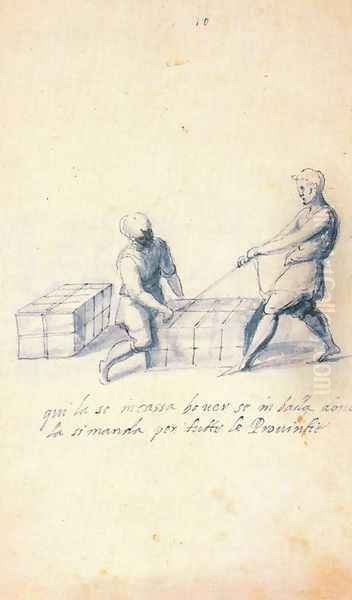 10
qui la se incassa hover se in balla
la si manda per tutte le Provintie